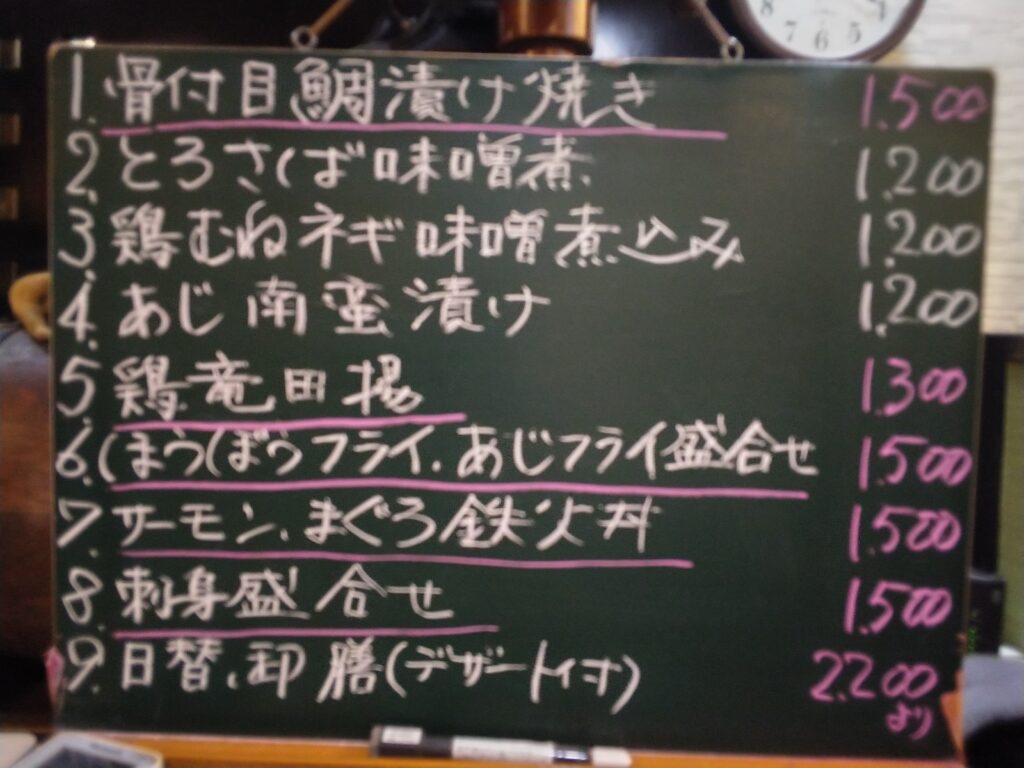 8 7 6 5 4
1. 骨付目鯛漬け焼き 1.500
2. とろさば味噌煮 1.200
3. 鶏むねネギ味噌煮込み 1.200
4. あじ南蛮漬け 1.200
5. 鶏竜田揚 1.300
6. ほうぼうフライ.あじフライ盛合せ 1.500
7. サーモン、まぐろ鉄火丼 1.500
8. 刺身盛合せ 1.500
9. 日替、御膳(デザート付) 2.200
より